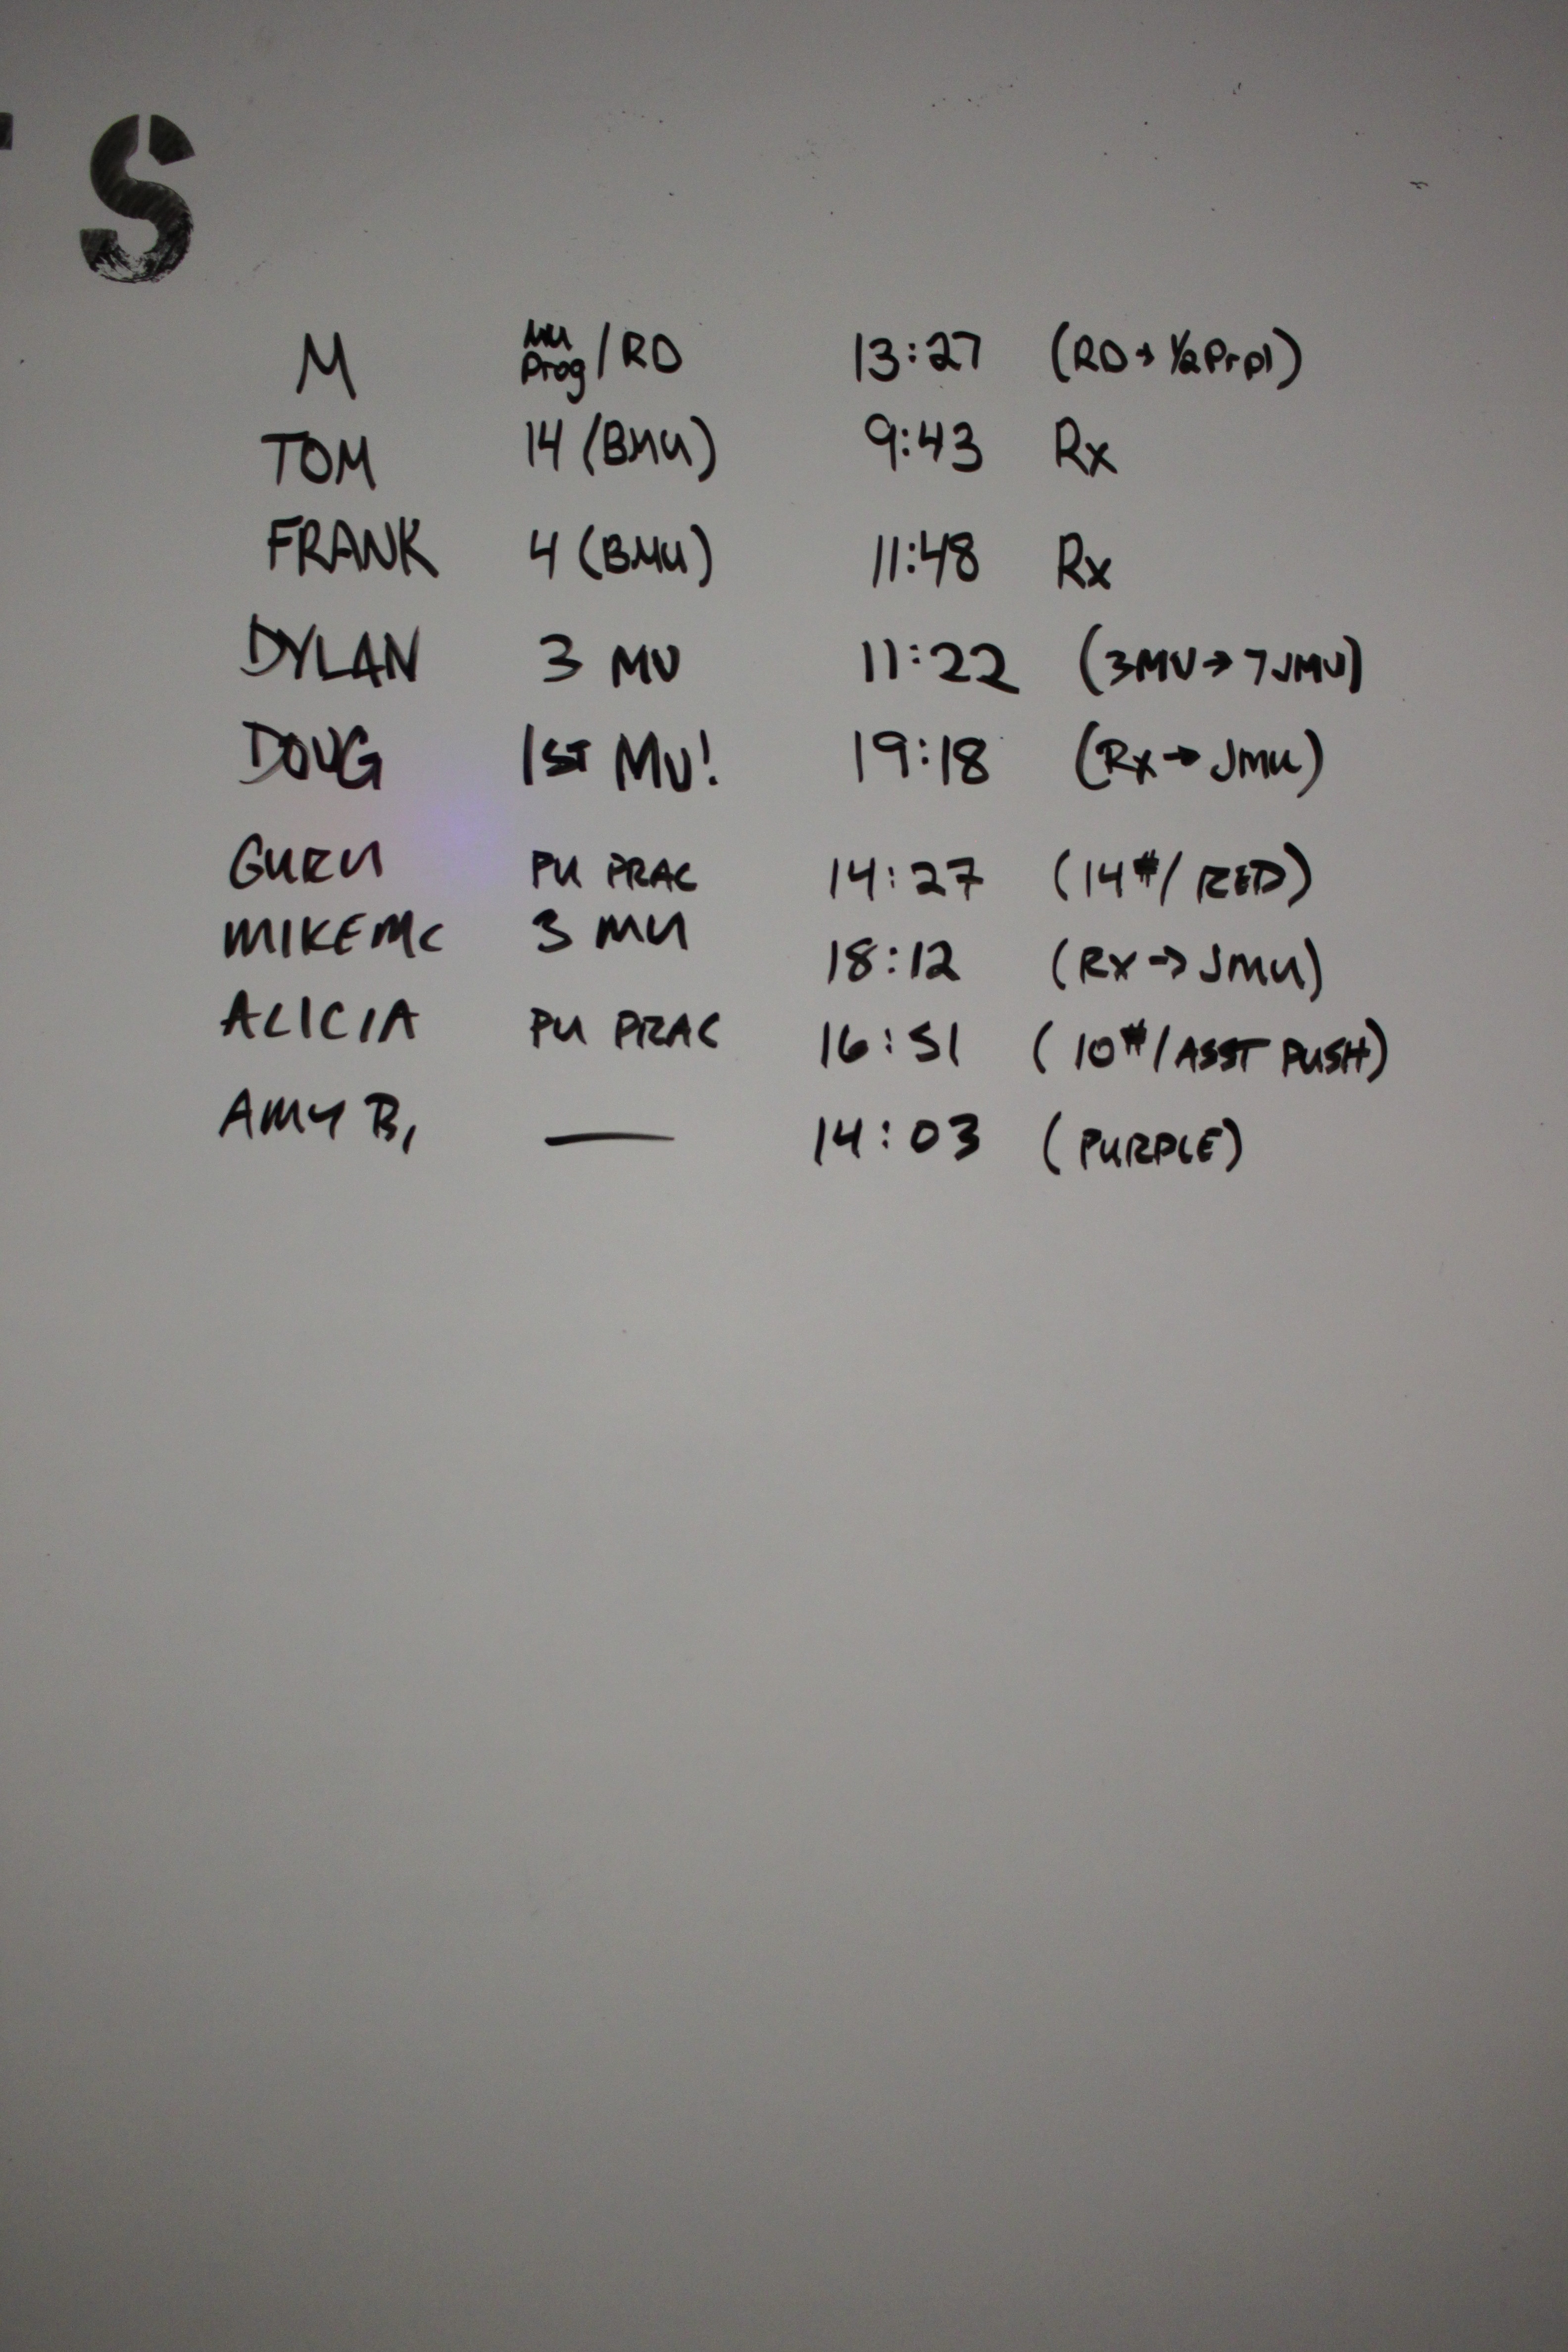 S
M MU Prog / RD 13:27 (RD → 1/2 Prpl)
TOM 14 (BMU) 9:43 Rx
FRANK 4 (BMU) 11:48 Rx
DYLAN 3 MU 11:22 (3MU → 7 JMU)
DOUG 1ST MU! 19:18 (Rx → JMU)
GURU PU PRAC 14:27 (14#/ RED)
MIKE MC 3 MU 18:12 (RX → JMU)
ALICIA PU PRAC 16:51 (10#/ASST PUSH)
AMY B. — 14:03 (PURPLE)